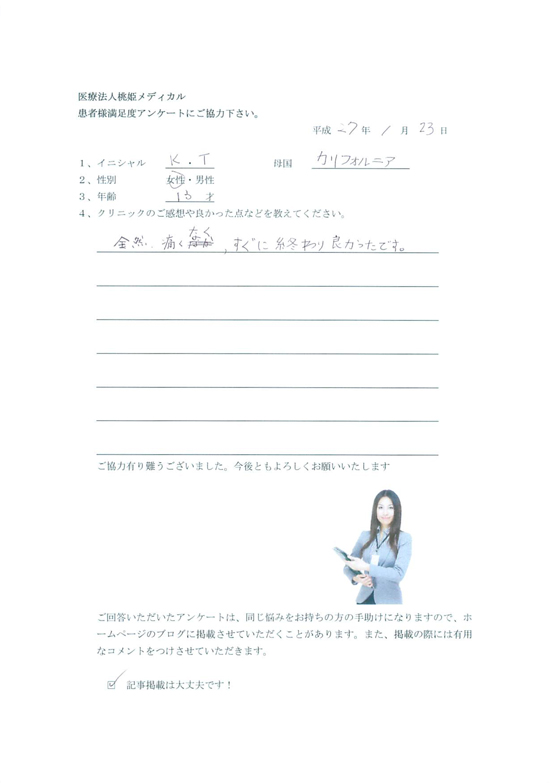 医療法人桃姫メディカル
患者様満足度アンケートにご協力下さい。
平成 27 年 1 月 23 日
1、イニシャル K.T 母国 カリフォルニア
2、性別 女性・男性
3、年齢 13 才
4、クリニックのご感想や良かった点などを教えてください。
全然、痛くなく,すぐに終わり良かったです。
ご協力有り難うございました。今後ともよろしくお願いいたします
ご回答いただいたアンケートは、同じ悩みをお持ちの方の手助けになりますので、ホ
ームページのブログに掲載させていただくことがあります。また、掲載の際には有用
なコメントをつけさせていただきます。
☑ 記事掲載は大丈夫です！